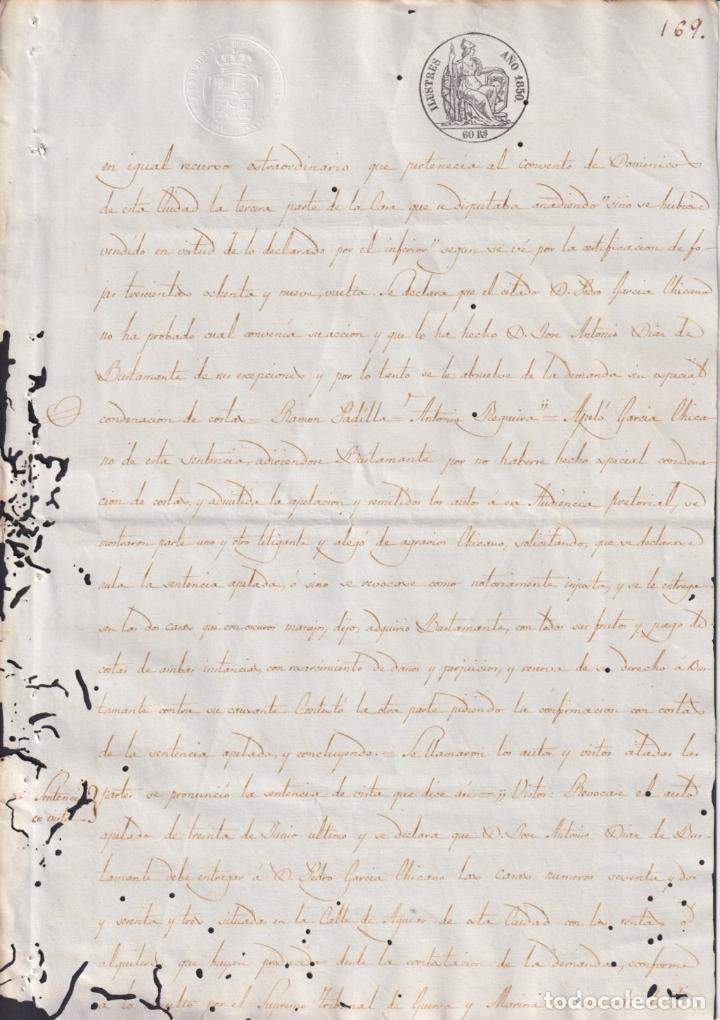 169.
ILUSTRES AÑO 1850.
60 Rs
en igual recurso extraordinario que pertenecia al convento de Dominicos
de esta Ciudad la tercera parte de la Casa que se disputaba anadiendo "sino se hubiera
vendido en virtud de lo declarado por el inferior" segun se vé por la certificacion de fo-
jas trescientas ochenta y nueve, vuelta. Se declara que el citado D. Pedro Garcia Chicano
no ha probado cual convenia su accion y que lo ha hecho D. Jose Antonio Diaz de
Bustamante de sus excepciones y por lo tanto se le absuelve de la demanda sin especial
condenacion de costas = Ramon Padilla = Antonio Regueira" = Apeló Garcia Chica-
no de esta sentencia, adiriendose Bustamante por no haberse hecho especial condena-
cion de costas, y admitida la apelacion y remitidos los autos á esa Audiencia pretorial, se
mostraron parte uno y otro litigante y alegó de agravios Chicano, solicitando, que se declarase
nula la sentencia apelada, ó sino se revocase como notoriamente injusta, y se le entrega-
sen las dos casas que con oscuros manejos, dijo, adquirio Bustamante, con todos sus frutos y pago de
costas de ambas instancias, con resarcimiento de daños y perjuicios, y reserva de su derecho a Bus-
tamante contra su causante Contestó la otra parte pidiendo la confirmacion con costas
de la sentencia apelada, y concluyendo = Se llamaron los autos y vistos citadas las
Sentencia
en vista
partes se pronunció la sentencia de vista que dice asi = "Vistos: Revocase el auto
apelado de treinta de Junio ultimo y se declara que D. Jose Antonio Diaz de Bus-
tamante debe entregar á D. Pedro Garcia Chicano las casas numeros sesenta y dos
y sesenta y tres situadas en la Calle de Aguiar de esta Ciudad con las rentas ó
alquileres que hayan producido desde la contestacion de la demanda, conforme
a lo resuelto por el Supremo Tribunal de Guerra y Marina
todocoleccion